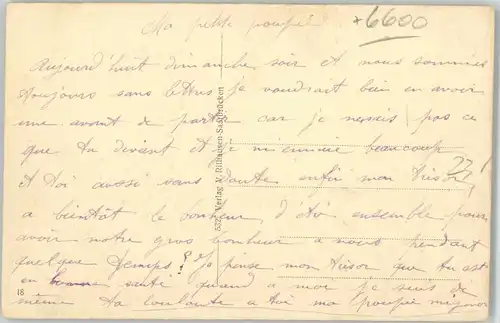 Ma petite poupée
*6600
Aujourd'huit dimanche soir et nous sommes
toujours sans lettres je voudrait bien en avoir
une avant de partir car je nessais pas ce
que tu devient et je m'ennuie beaucoup
et toi aussi sans doute enfin mon trésor
a bientôt le bonheur d'être ensemble pour
avoir notre gros bonheur a nous pendant
quelque temps ? je pense mon trésor que tu est
en bonne santé quand a moi je suis de
même ta louloute a toi ma poupée mignon
5322 Verlag V. Rithausen-Saarbrücken
18